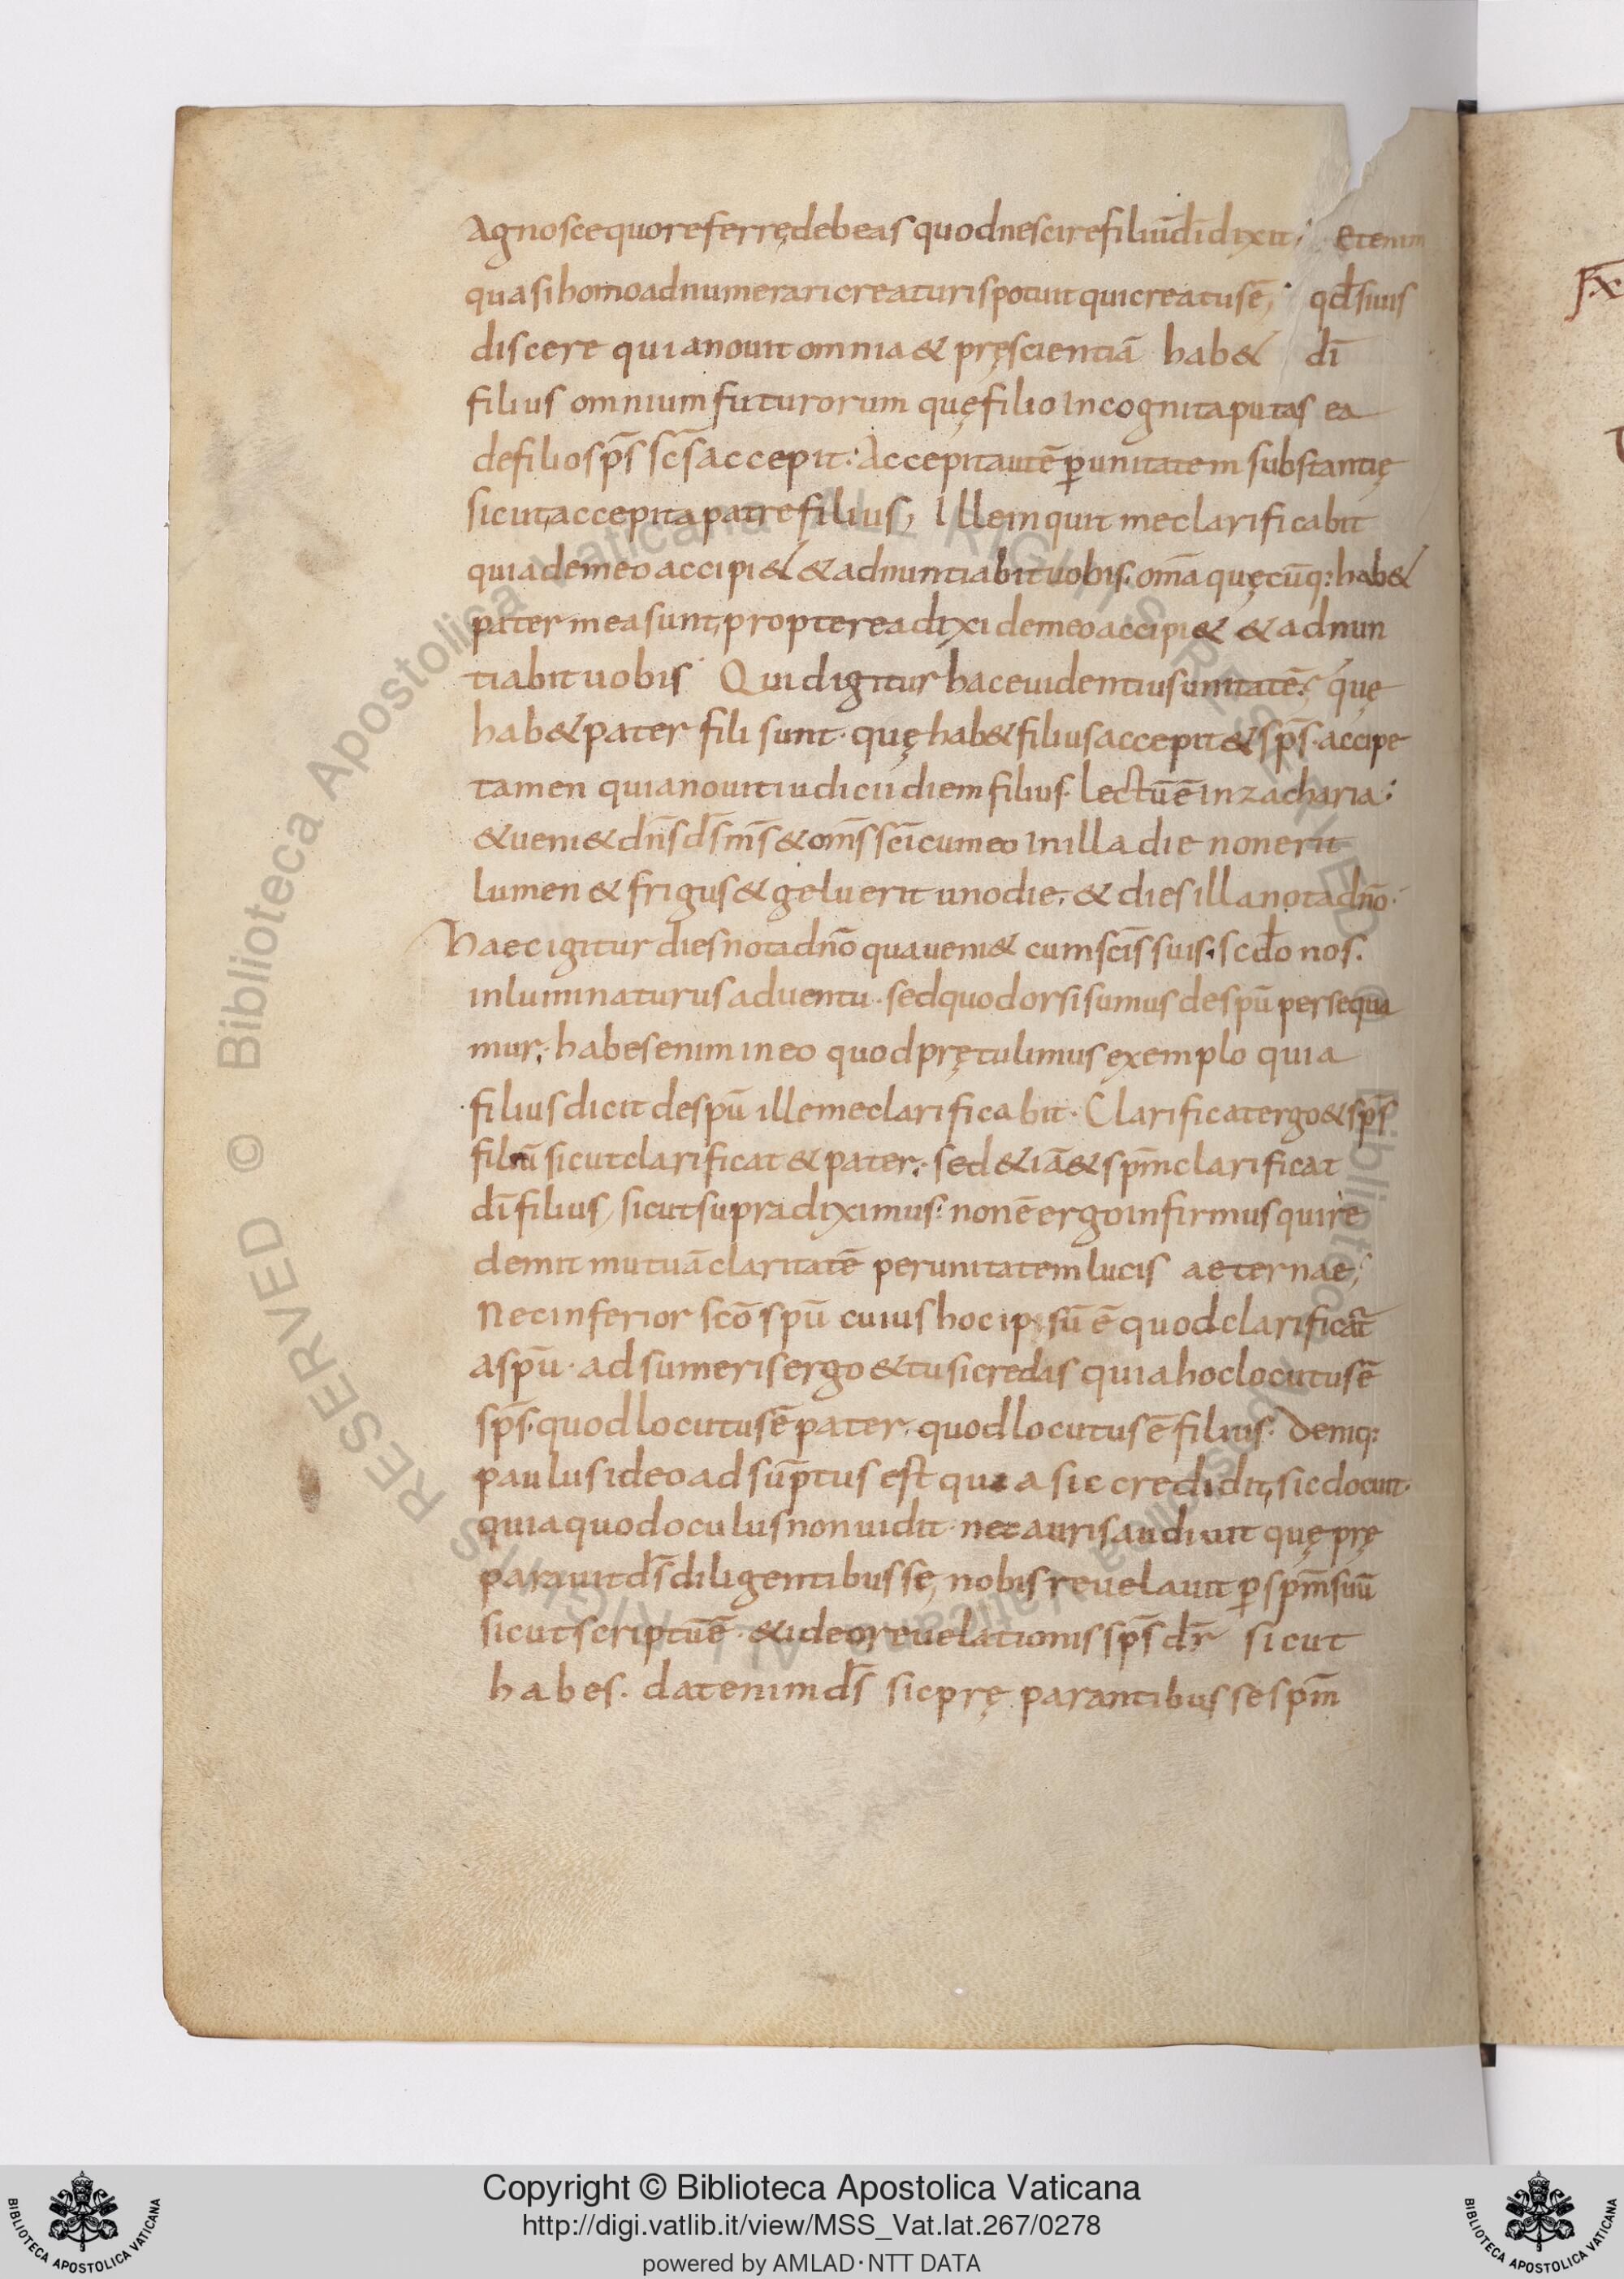 Agnosce quo referrę debeas quod nescire filiū dī dixit; Etenim
quasi homo adnumerari creaturis potuit qui creatus ē; qd̄ si uis
discere quia nouit omnia & pręscientiā hab& dī
filius omnium futurorum quę filio incognita putas ea
de filio sp̄s sc̄s accepit: Accepit autē ꝑ unitatem substantię
sicut accepit a patre filius; Ille inquit me clarificabit
quia de meo accipi& & adnuntiabit uobis. om̄a quęcūq: hab&
pater mea sunt, propterea dixi de meo accipi& & adnun
tiabit uobis Quid igitur hac euidentius unitatē; quę
hab& pater fili sunt. quę hab& filius accepit & sp̄s. accipe
tamen quia nouit iudicii diem filius. lectū ē in zacharia:
& ueni& dn̄s ds̄ m̄s & om̄s sc̄i cum eo in illa die non erit
lumen & frigus & gelu erit uno die, & dies illa nota dn̄o.
Haec igitur dies nota dn̄o qua ueni& cum sc̄is suis. scd̄o nos.
inluminaturus aduentu. sed quod orsi sumus de spū persequa
mur; habes enim in eo quod prętulimus exemplo quia
filius dicit de spū ille me clarificabit. Clarificat ergo & sp̄s
filiū sicut clarificat & pater; sed &iā & sp̄m clarificat
dī filius, sicut supra diximus: non ē ergo infirmus qui re
demit mutuā claritatē per unitatem lucis aeternae;
Nec inferior sc̄o spū cuius hoc ipsū ē quod clarificat
a spū. adsumeris ergo & tu si credas quia hoc locutus ē
sp̄s. quod locutus ē pater, quod locutus ē filius. Deniq:
paulus ideo adsūptus est quia sic credidit, sic docuit.
quia quod oculus non uidit nec auris audiuit quę prę
parauit ds̄ diligentibus se, nobis reuelauit ꝑ sp̄m suū
sicut scriptū ē. & ideo reuelationis sp̄s dr̄ sicut
habes. dat enim ds̄ sic prę parantibus se sp̄m
Biblioteca Apostolica Vaticana ALL RIGHTS RESERVED ©
Biblioteca Apostolica Vaticana ALL RIGHTS RESERVED ©
Copyright © Biblioteca Apostolica Vaticana
http://digi.vatlib.it/view/MSS_Vat.lat.267/0278
powered by AMLAD · NTT DATA
BIBLIOTECA APOSTOLICA VATICANA
BIBLIOTECA APOSTOLICA VATICANA